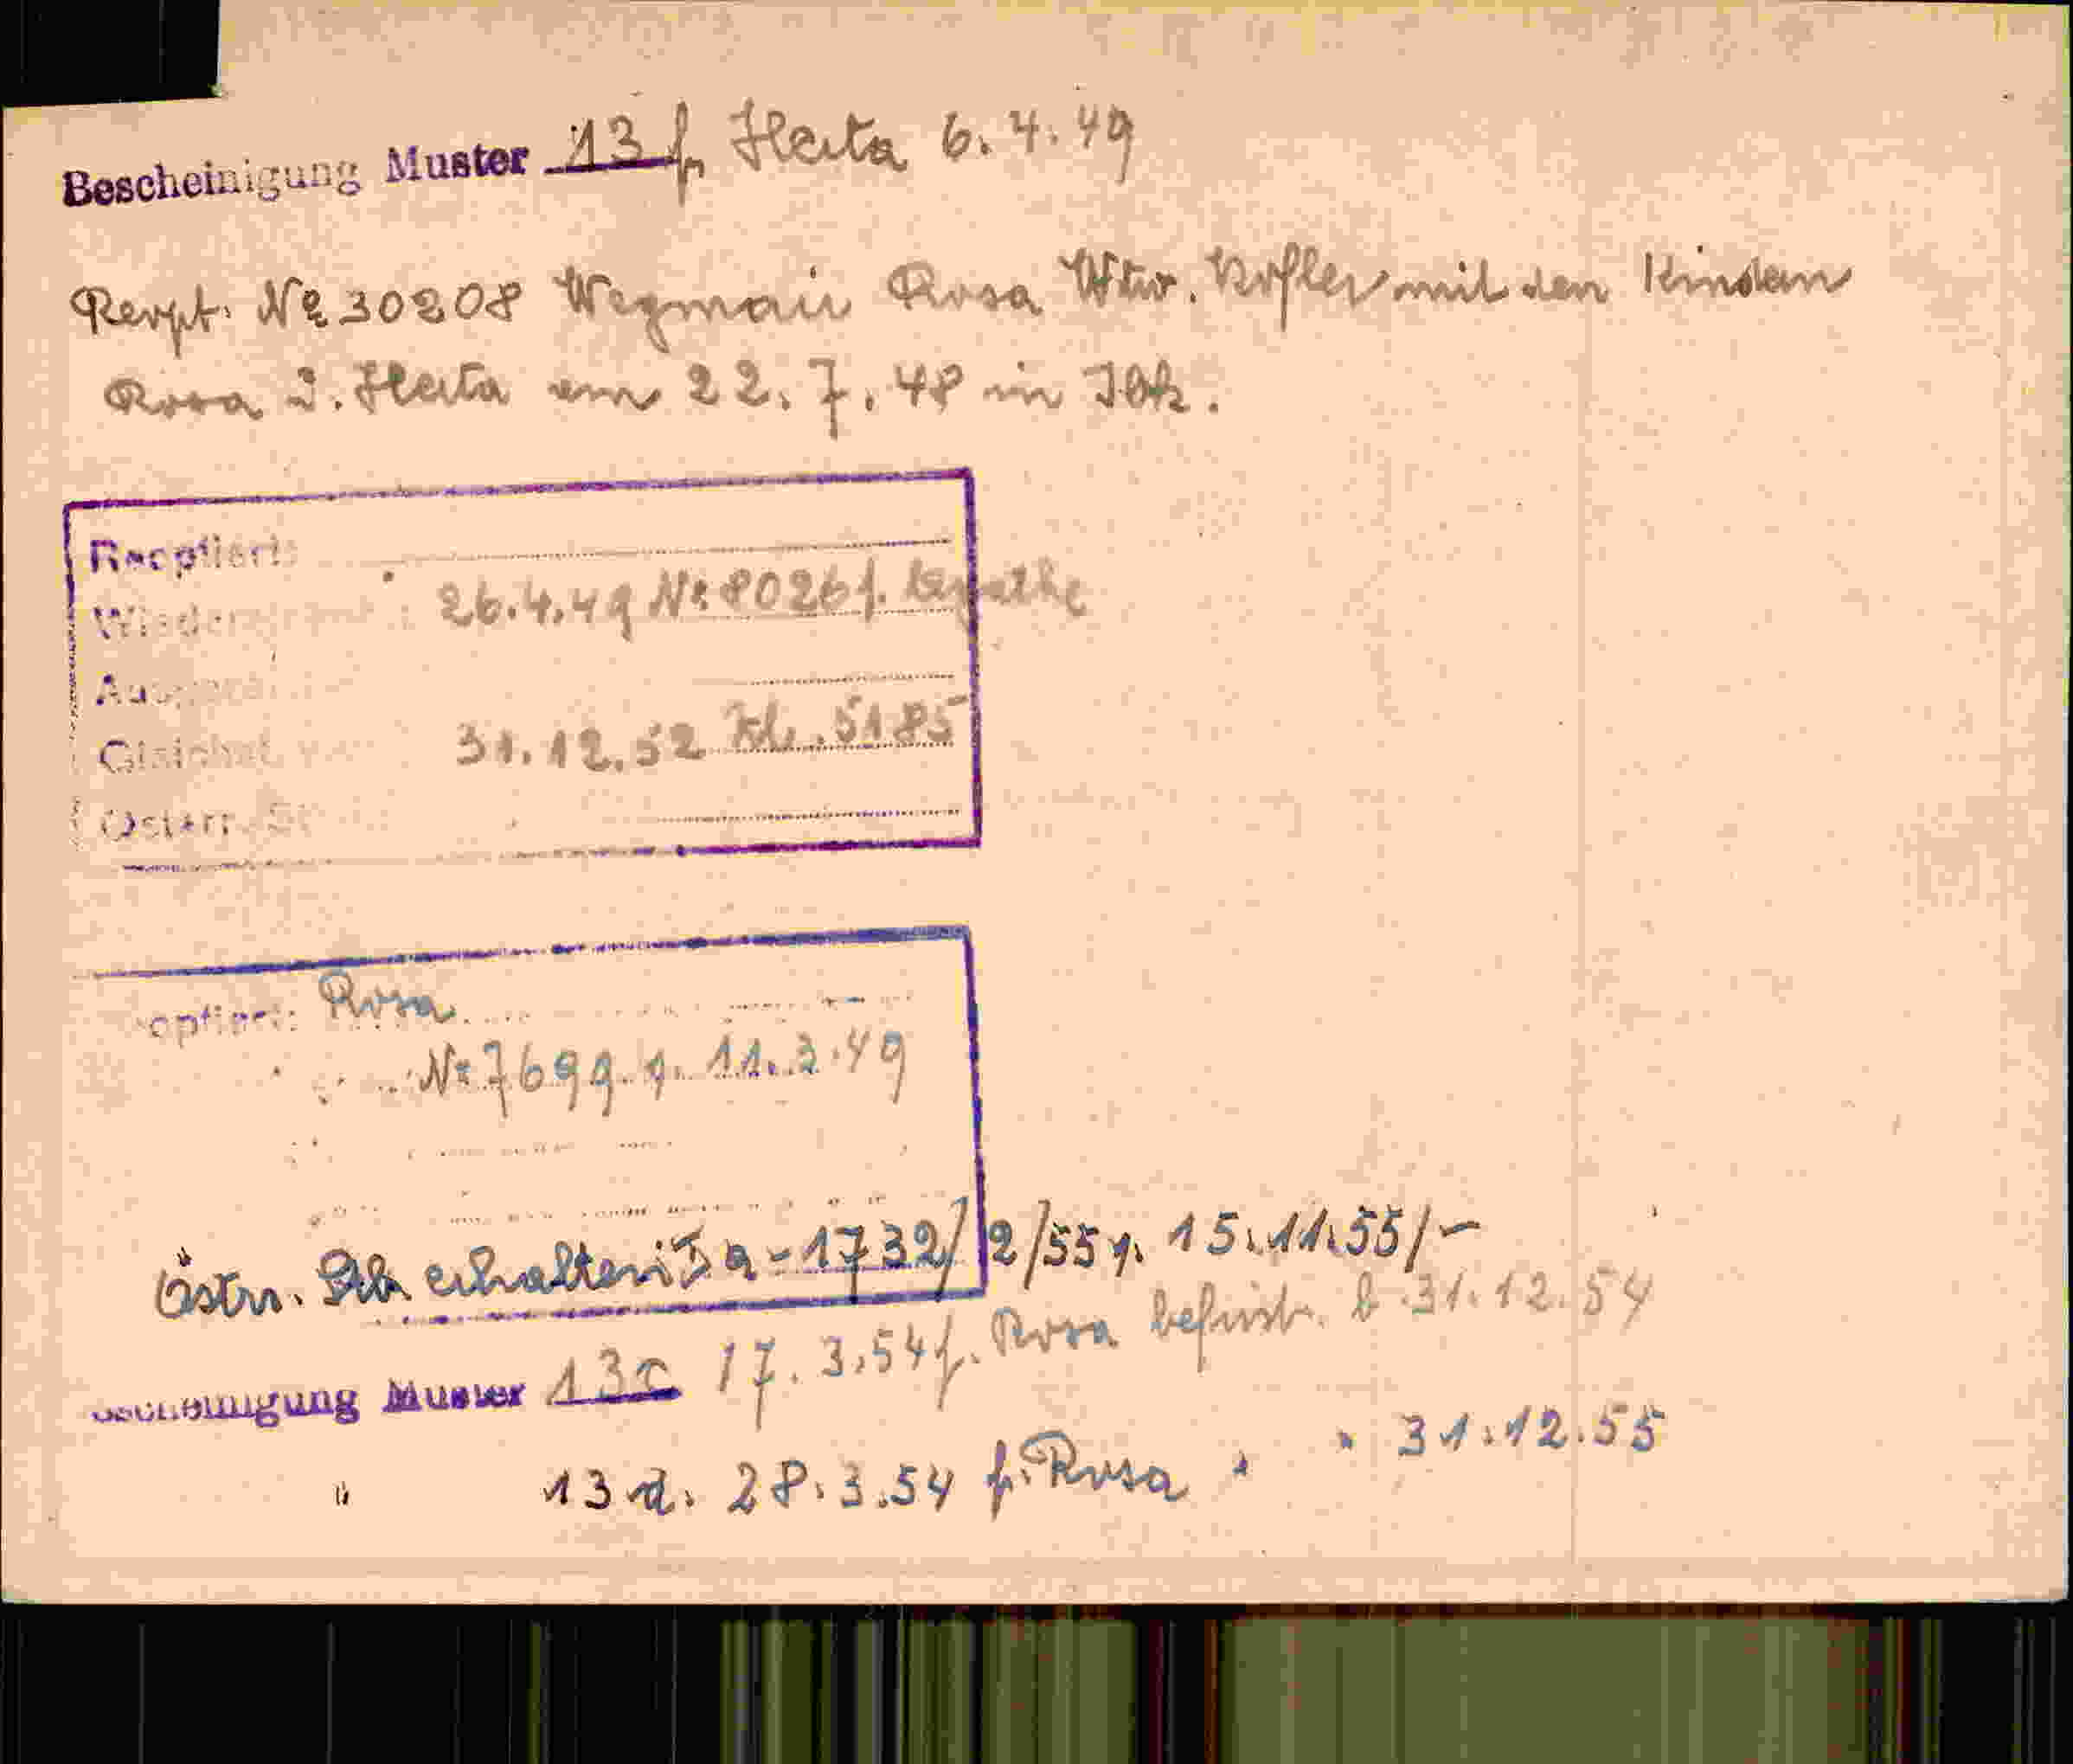 Bescheinigung Muster 13 f. Herta 6.4.49
Rept. № 30208 Wegmair Rosa Wtw. Kofler mit den Kindern
Rosa u. Herta am 22.7.48 in Ibk.
Reoptiert:
26.4.49 № 8026 f.
31.12.52 Zl. 5185
Österr. St
optiert: Rosa
№ 7699 v. 11.3.49
Östr. Stb. erhalten: Ia-1732/2/55 v. 15.11.55/-
Bescheinigung Muster 13c 17.3.54 f. Rosa befrist. b. 31.12.54
" 13 d. 28.3.54 f. Rosa " " 31.12.55